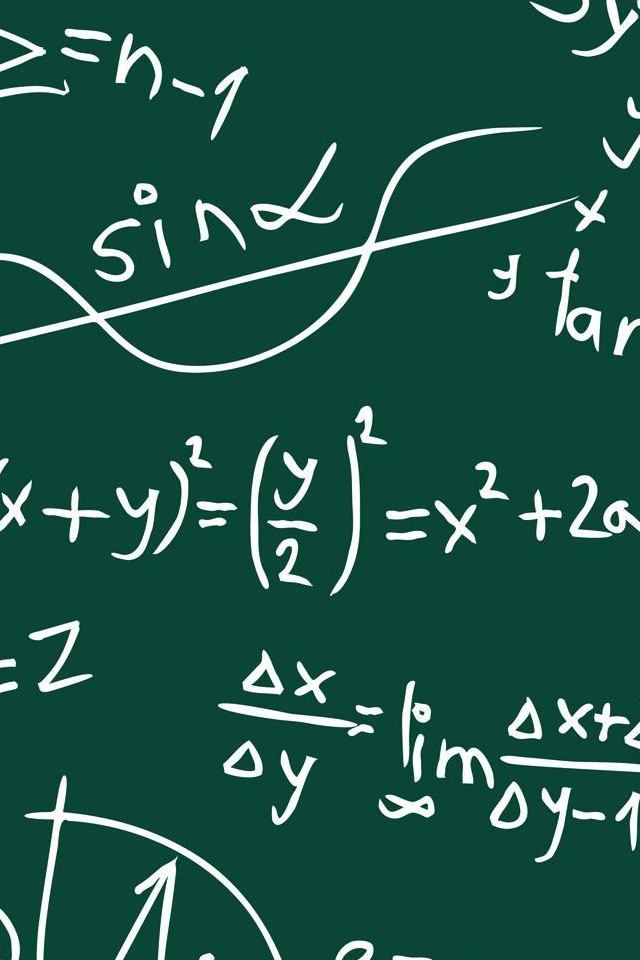 ∑=n-1
sin α
x
y tan
(x+y)²=(y/2)²=x²+2a
=Z
Δx/Δy=lim ∞ Δx+Δ/Δy-1